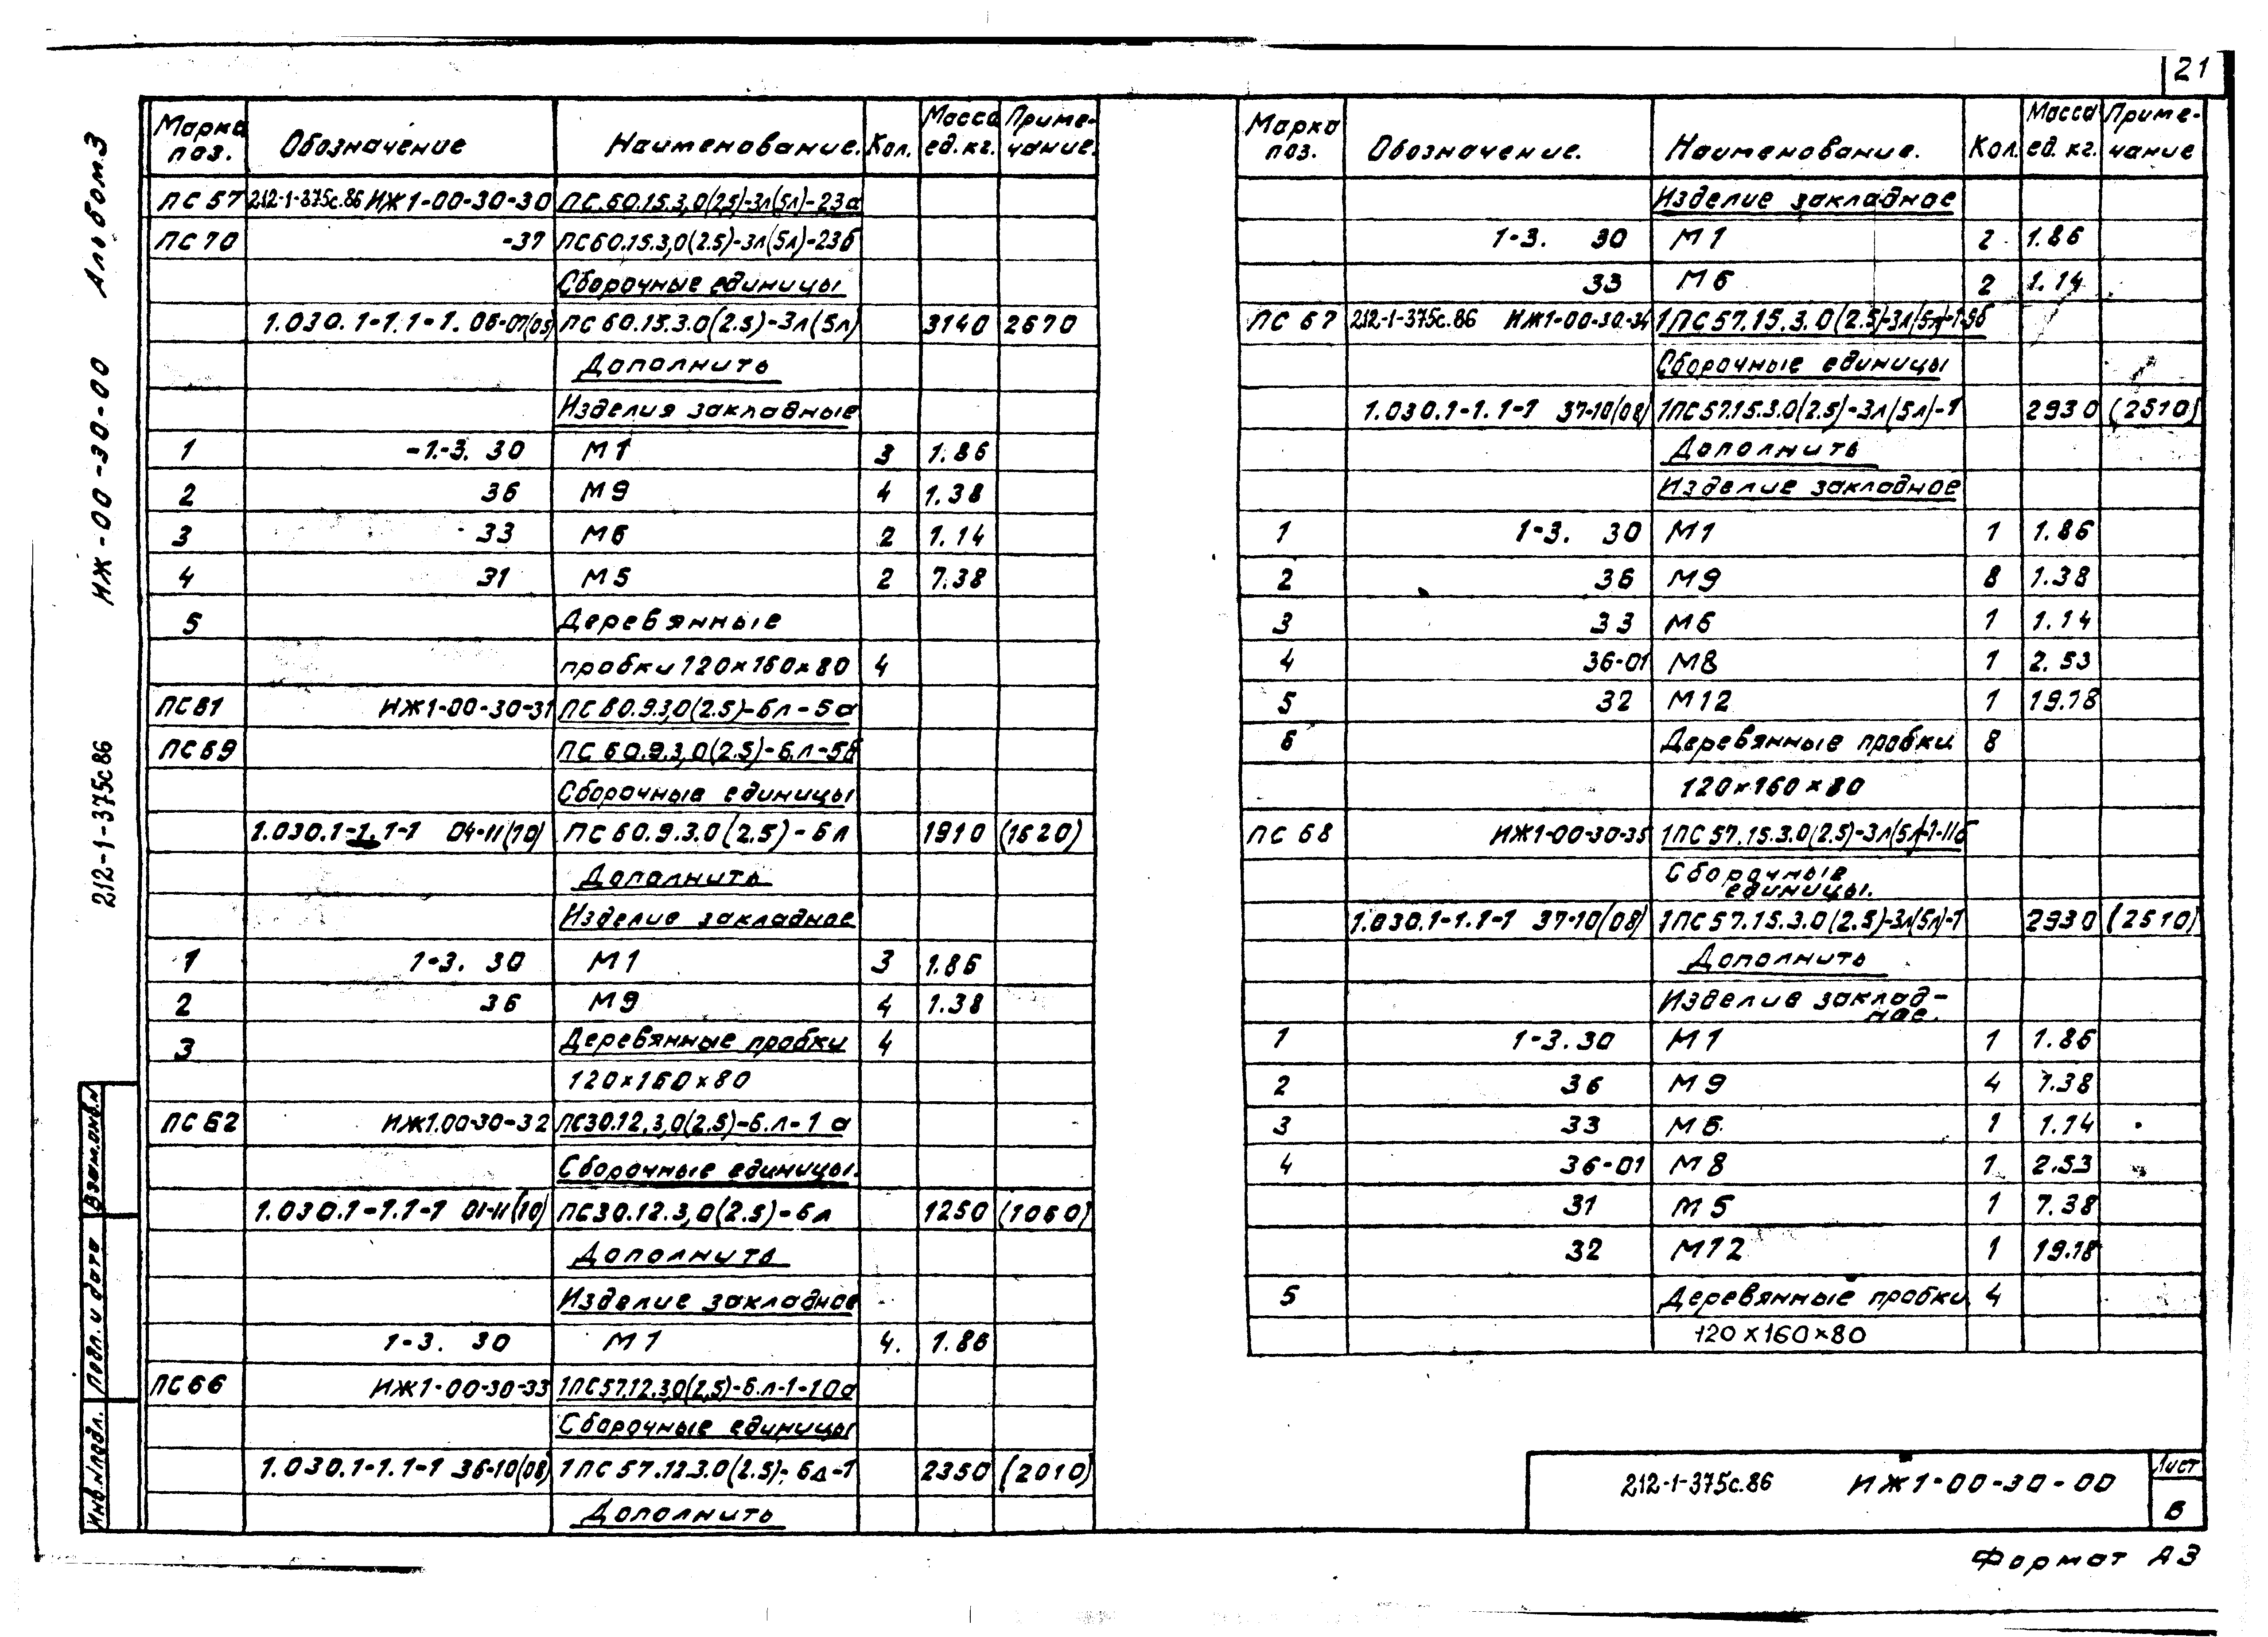 21
Альбом 3
ИЖ-00-30-00
212-1-375с86
Марка поз. Обозначение Наименование. Кол. Масса ед. кг. Приме-чание.
ПС 57 212-1-375с.86 ИЖ1-00-30-30 ПС.60.15.3,0(2,5)-3л(5л)-23а
ПС 70 -37 ПС60.15.3,0(2.5)-3л(5л)-23б
Сборочные единицы
1.030.1-1.1-1. 06-07(05) ПС 60.15.3.0(2.5)-3л(5л) 3140 2670
Дополнить
Изделия закладные
1 -1.-3. 30 М1 3 1.86
2 36 М9 4 1.38
3 33 М6 2 1.14
4 31 М5 2 7.38
5 Деревянные
пробки 120×160×80 4
ПС61 ИЖ1-00-30-31 ПС60.9.3,0(2.5)-6л-5а
ПС69 ПС 60.9.3,0(2.5)-6.л-5б
Сборочные единицы
1.030.1-1.1-1 04-11(10) ПС 60.9.3.0(2.5)-6л 1910 (1620)
Дополнить
Изделие закладное
1 1-3. 30 М1 3 1.86
2 36 М9 4 1.38
3 Деревянные пробки 4
120×160×80
ПС62 ИЖ1.00-30-32 ПС30.12.3,0(2.5)-6.л-1а
Сборочные единицы.
1.030.1-1.1-1 01-11(10) ПС30.12.3,0(2.5)-6л 1250 (1060)
Дополнить
Изделие закладное
1-3. 30 М1 4. 1.86
ПС66 ИЖ1-00-30-33 1ПС57.12.3,0(2,5)-6.л-1-10а
Сборочные единицы
1.030.1-1.1-1 36-10(08) 1ПС 57.12.3.0(2.5)-6л-1 2350 (2010)
Дополнить
Марка поз. Обозначение. Наименование. Кол. Масса ед. кг. Приме-чание
Изделие закладное
1-3. 30 М1 2 1.86
33 М6 2 1.14
ПС 67 212-1-375с.86 ИЖ1-00-30-34 1ПС57.15.3.0(2.5)-3л(5л)-1-9б
Сборочные единицы
1.030.1-1.1-1 37-10(08) 1ПС57.15.3.0(2.5)-3л(5л)-1 2930 (2510)
Дополнить
Изделие закладное
1 1-3. 30 М1 1 1.86
2 36 М9 8 1.38
3 33 М6 1 1.14
4 36-01 М8 1 2.53
5 32 М12 1 19.18
6 Деревянные пробки 8
120×160×80
ПС 68 ИЖ1-00-30-35 1ПС57.15.3.0(2.5)-3л(5л)-1-11б
Сборочные
единицы.
1.030.1-1.1-1 37-10(08) 1ПС57.15.3.0(2.5)-3л(5л)-1 2930 (2510)
Дополнить
Изделие заклад-
ное.
1 1-3.30 М1 1 1.86
2 36 М9 4 1.38
3 33 М6 1 1.14
4 36-01 М8 1 2.53
31 М5 1 7.38
32 М12 1 19.18
5 Деревянные пробки 4
120×160×80
Взам.инв.н
Подп. и дата
Инв.Nподл.
212-1-375с.86 ИЖ1-00-30-00
Лист
6
Формат А3